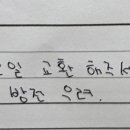 오일 교환 해주세
방전 우려.